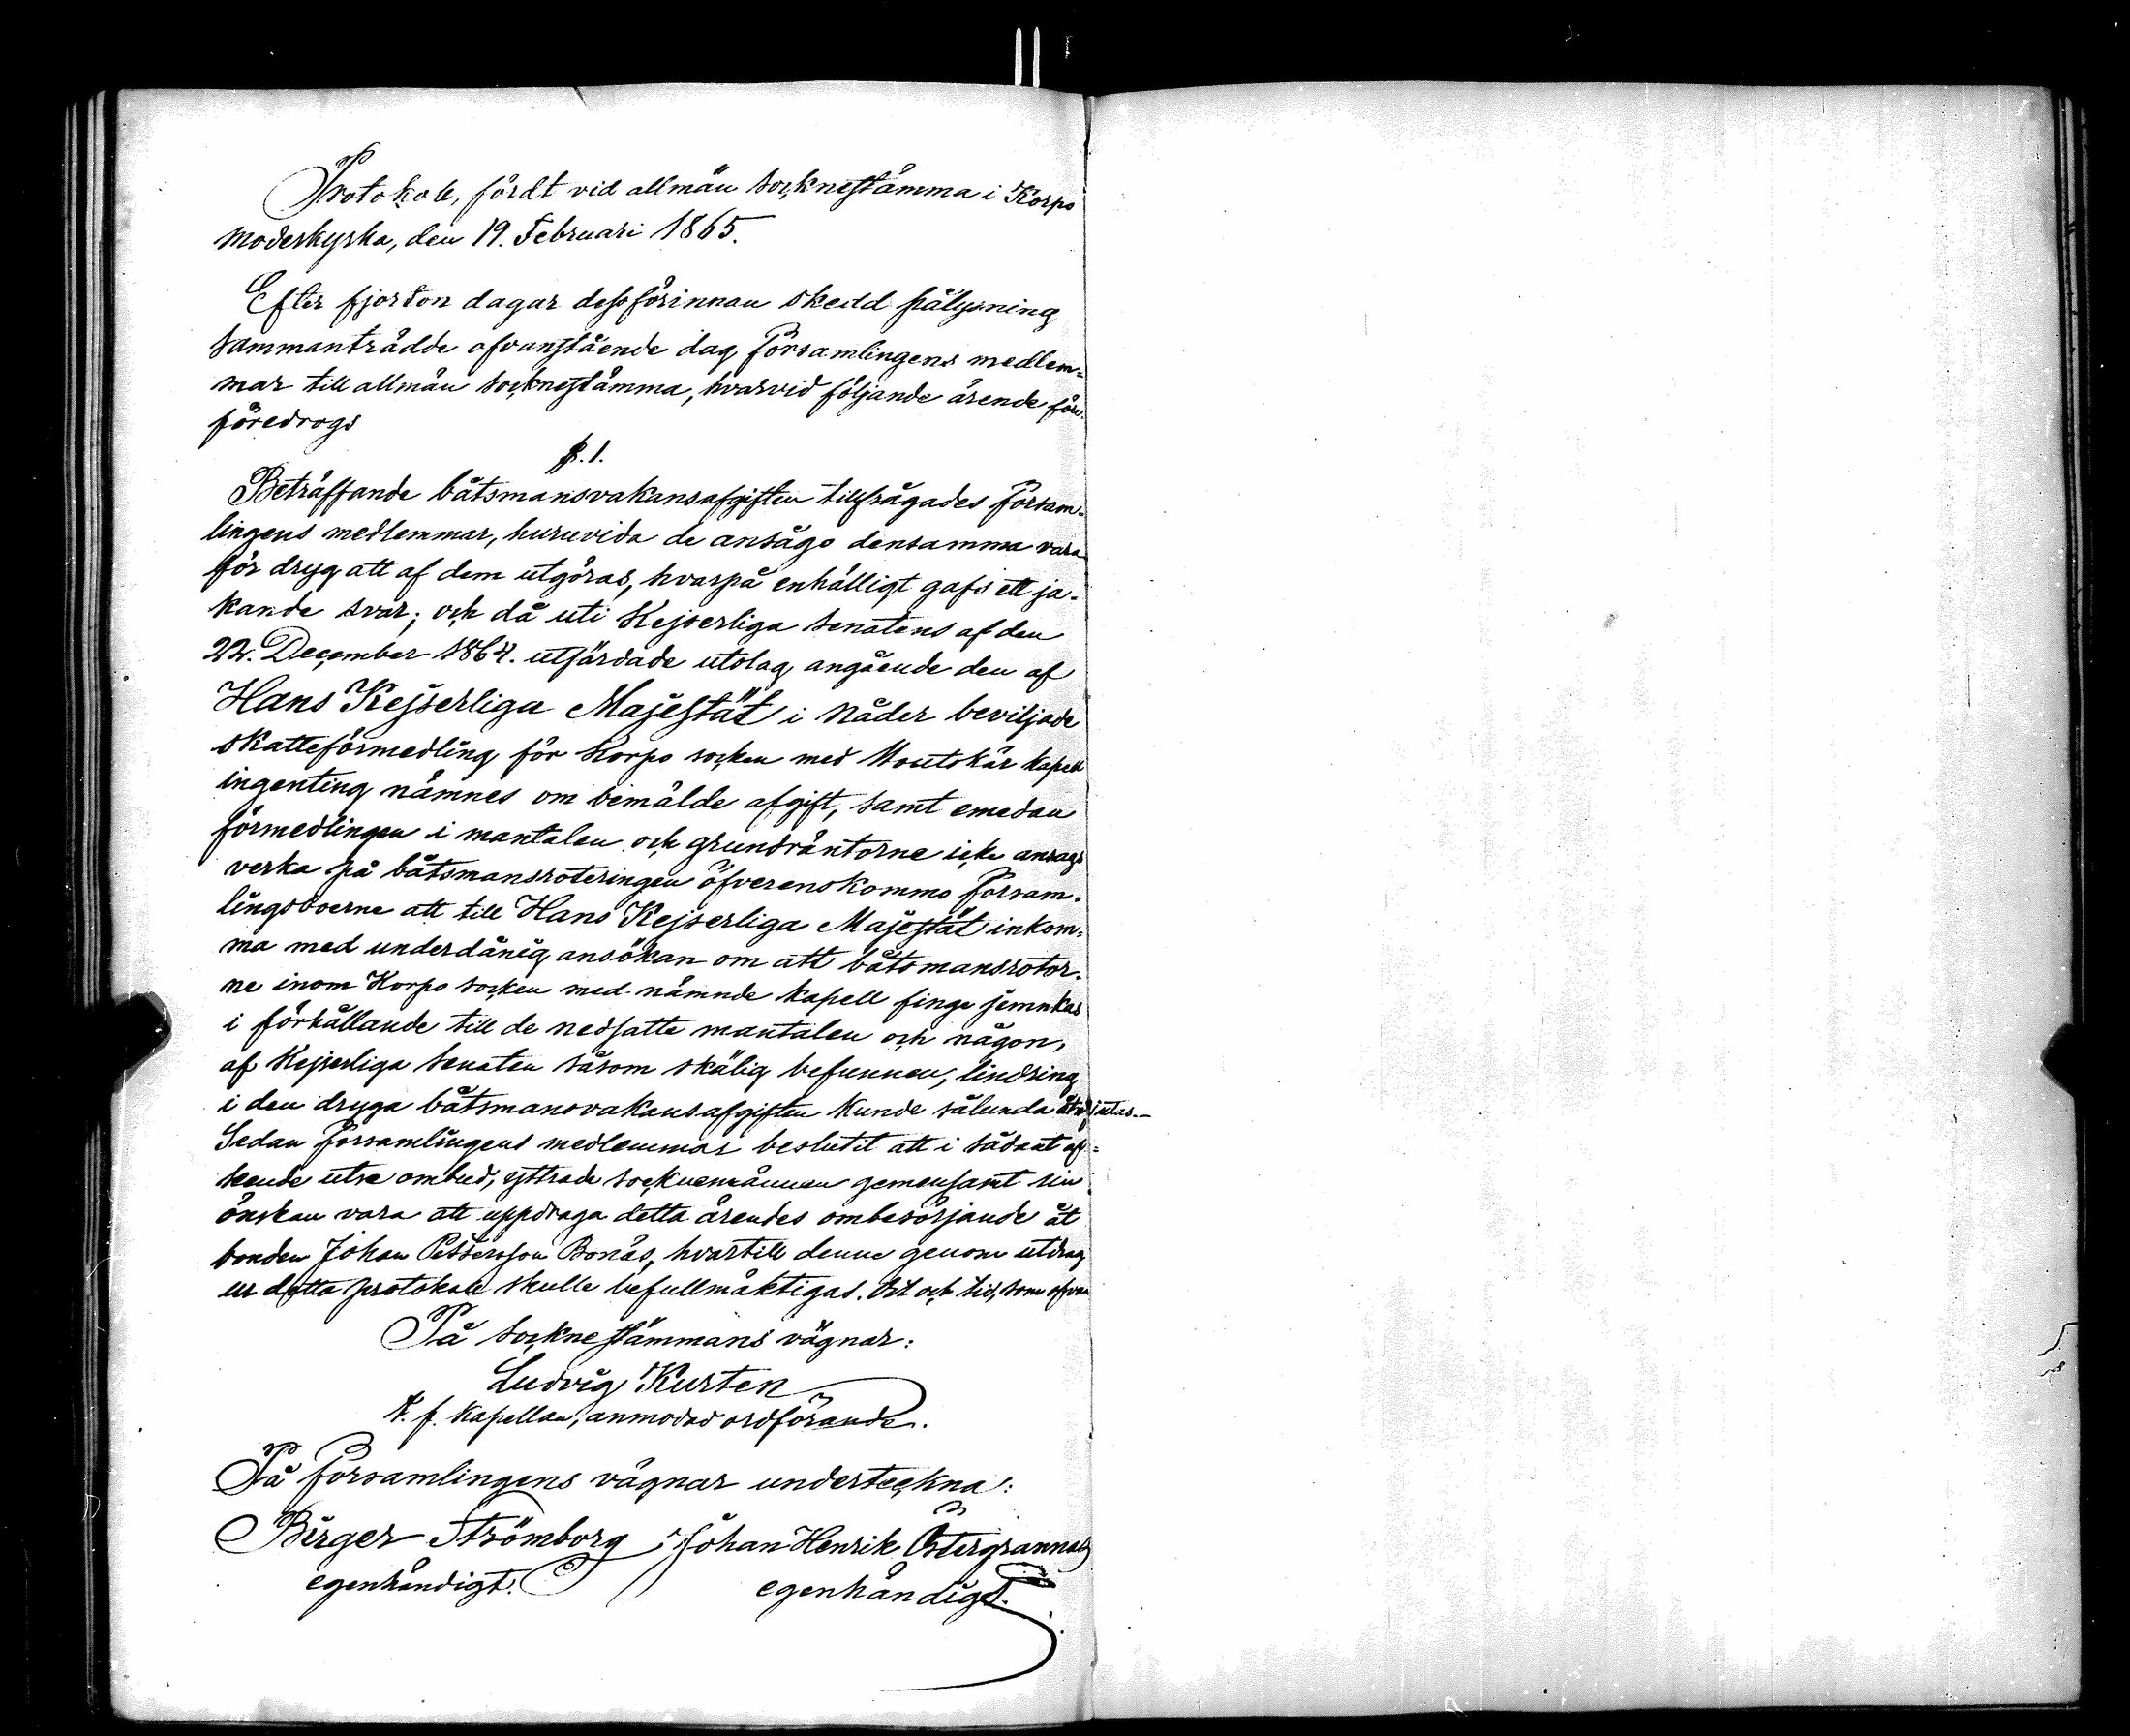 Protokoll, fördt vid allmän socknestämma i Korpo
moderkyrka, den 19. Februari 1865.
Efter fjorton dagar dessförinnan skedd pålysning
sammanträdde ofvanstående dag församlingens medlem-
mar till allmän socknestämma, hvarvid följande ärende
föredrogs
§. 1.
Beträffande båtsmansvakansafgiften tillfrågades försam-
lingens medlemmar, huruvida de ansågo densamma vara
för dryg att af dem utgöras, hvarpå enhälligt gafs ett ja-
kande svar; och då uti Kejserliga Senatens af den
22. December 1864. utfärdade utslag angående den af
Hans Kejserliga Majestät i Nåder beviljade
skatteförmedling för Korpo socken med Houtskär kapell
ingenting nämnes om bemälde afgift, samt emedan
förmedlingen i mantalen och grundräntorne icke ansågs
verka på båtsmansroteringen öfverenskommo försam-
lingsboerne att till Hans Kejserliga Majestät inkom-
ma med underdånig ansökan om att båtsmansrotor-
ne inom Korpo socken med nämnde kapell finge jemnkas
i förhållande till de nedsatte mantalen och någon,
af Kejserliga Senaten såsom skälig befunnen, lindring
i den dryga båtsmansvakansafgiften kunde sålunda åtnjutas.—
Sedan församlingens medlemmar beslutit att i sådant af-
seende utse ombud, yttrade socknemännen gemensamt sin
önskan vara att uppdraga detta ärendes ombesörjande åt
bonden Johan Pettersson Bonäs, hvartill denne genom utdrag
ur detta protokoll skulle befullmäktigas. Ort och tid, som ofvan
På socknestämmans vägnar:
Ludvig Kurten
t. f. Kapellan, anmodad ordförande.
På församlingens vägnar underteckna:
Birger Strömborg Johan Henrik Östergrannas
egenhändigt. egenhändigt.